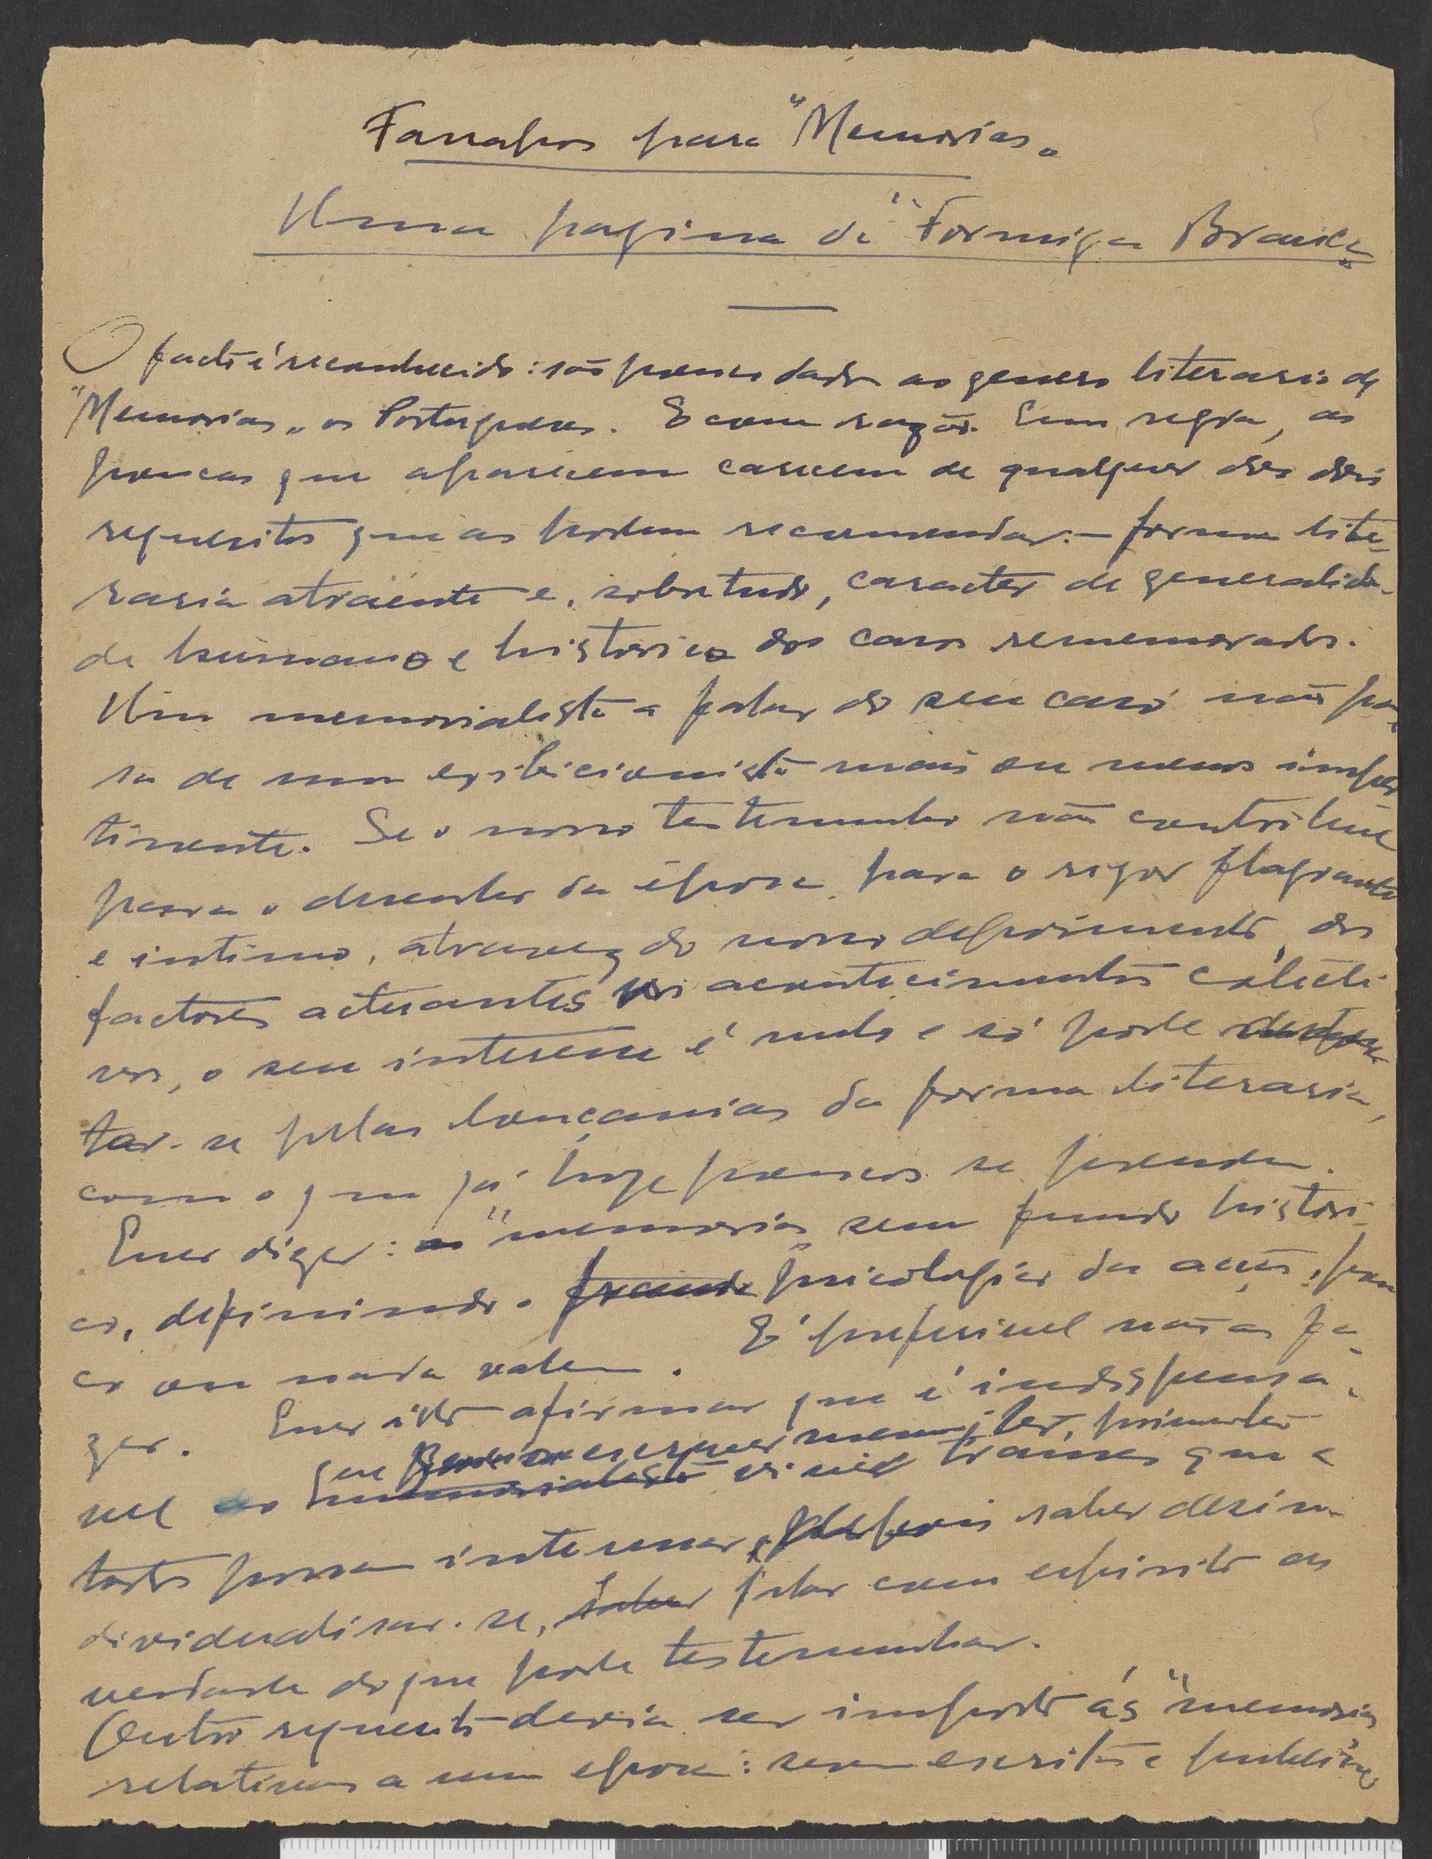 Farrapos para "Memorias"
Uma pagina da "Formiga Branca"
O facto é reconhecido: são poucos dados ao genero literario de
"Memorias" os Portugueses. E com razão. Em regra, as
poucas que aparecem carecem de qualquer dos dois
requesitos que as podem recomendar: - forma lite-
raria atraente e, sobretudo, caracter de generalida-
de humano e historico dos casos rememorados.
Um memorialista a falar do seu caso não pas-
sa de um exibicionista mais ou menos imper-
tinente. Se o nosso testemunho não contribue
para o desenho da época, para o rigor flagrante
e intimo, atravez do nosso depoimento, dos
factores actuantes nos acontecimentos colecti-
vos, o seu interesse é nulo e só pode
tar-se pelas louçanias da forma literaria,
com o que já hoje poucos se prendem.
Quer dizer: as "memorias" sem fundo histori-
co, definindo a psicologia da acção, pou-
co ou nada valem. É preferivel não as fa-
zer. Quer isto afirmar que é indispensa-
vel que quem as escrever, primeiro
viver transes que a
todos possam interessar e depois saber desin-
dividualisar-se, falar com espirito de
verdade do que pode testemunhar.
Outro requesito devia ser imposto ás "memorias"
relativas a uma epoca: serem escritas e publica